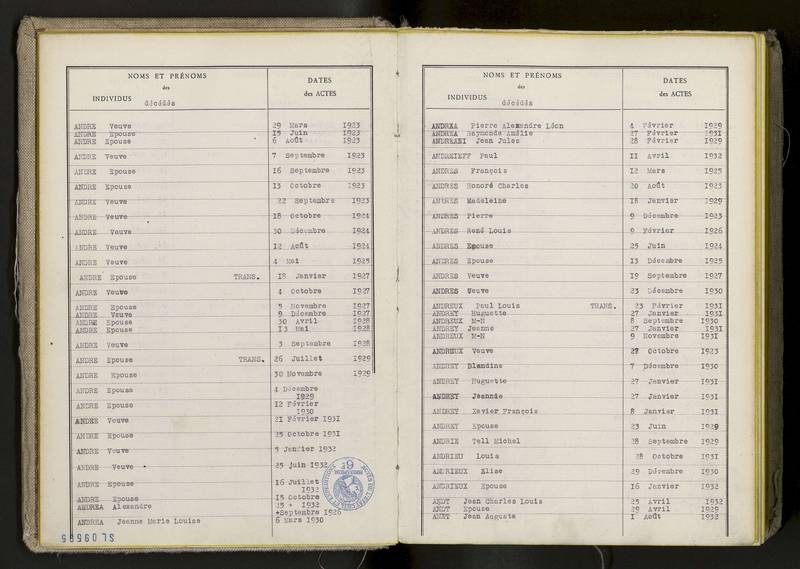 NOMS ET PRÉNOMS
des
INDIVIDUS décédés
DATES
des ACTES
ANDRE Veuve 29 Mars 1923
ANDRE Epouse 15 Juin 1923
ANDRE Epouse 6 Août 1923
ANDRE Veuve 7 Septembre 1923
ANDRE Epouse 16 Septembre 1923
ANDRE Epouse 13 Octobre 1923
ANDRE Veuve 22 Septembre 1923
ANDRE Veuve 18 Octobre 1924
ANDRE Veuve 30 Décembre 1924
ANDRE Veuve 12 Août 1924
ANDRE Veuve 4 Mai 1925
ANDRE Epouse TRANS. 18 Janvier 1927
ANDRE Veuve 4 Octobre 1927
ANDRE Epouse 5 Novembre 1927
ANDRE Veuve 9 Décembre 1927
ANDRE Epouse 30 Avril 1928
ANDRE Epouse 13 Mai 1928
ANDRE Veuve 3 Septembre 1928
ANDRE Epouse TRANS. 26 Juillet 1929
ANDRE Epouse 30 Novembre 1929
ANDRE Epouse 4 Décembre
1929
ANDRE Epouse 12 Février
1930
ANDRE Veuve 21 Février 1931
ANDRE Epouse 25 Octobre 1931
ANDRE Veuve 5 Janvier 1932
ANDRE Veuve 25 juin 1932
ANDRE Epouse 16 Juillet
1932
ANDRE Epouse 15 Octobre
ANDREA Alexandre 25 1932
Septembre 1926
ANDREA Jeanne Marie Louise 6 Mars 1930
NOMS ET PRÉNOMS
des
INDIVIDUS décédés
DATES
des ACTES
ANDREA Pierre Alexandre Léon 4 Février 1929
ANDREA Raymonde Amélie 27 Février 1931
ANDREANI Jean Jules 28 Février 1929
ANDREIEFF Paul 11 Avril 1932
ANDRES François 12 Mars 1925
ANDRES Honoré Charles 20 Août 1923
ANDRES Madeleine 18 Janvier 1929
ANDRES Pierre 9 Décembre 1923
ANDRES René Louis 9 Février 1926
ANDRES Epouse 25 Juin 1924
ANDRES Epouse 13 Décembre 1925
ANDRES Veuve 19 Septembre 1927
ANDRES Veuve 23 Décembre 1930
ANDREUX Paul Louis TRANS. 23 Février 1931
ANDREY Huguette 27 Janvier 1931
ANDREUX M-N 8 Septembre 1930
ANDREY Jeanne 27 Janvier 1931
ANDREUX M-N 9 Novembre 1931
ANDREUX Veuve 27 Octobre 1923
ANDREY Blandine 7 Décembre 1930
ANDREY Huguette 27 Janvier 1931
ANDREY Jeannie 27 Janvier 1931
ANDREY Xavier François 8 Janvier 1931
ANDREY Epouse 23 Juin 1929
ANDRIE Tell Michel 28 Septembre 1929
ANDRIEU Louis 28 Octobre 1931
ANDRIEUX Elise 29 Décembre 1930
ANDRIEUX Epouse 16 Janvier 1932
ANDT Jean Charles Louis 25 Avril 1932
ANDT Epouse 29 Avril 1929
ANDT Jean Auguste 1 Août 1932